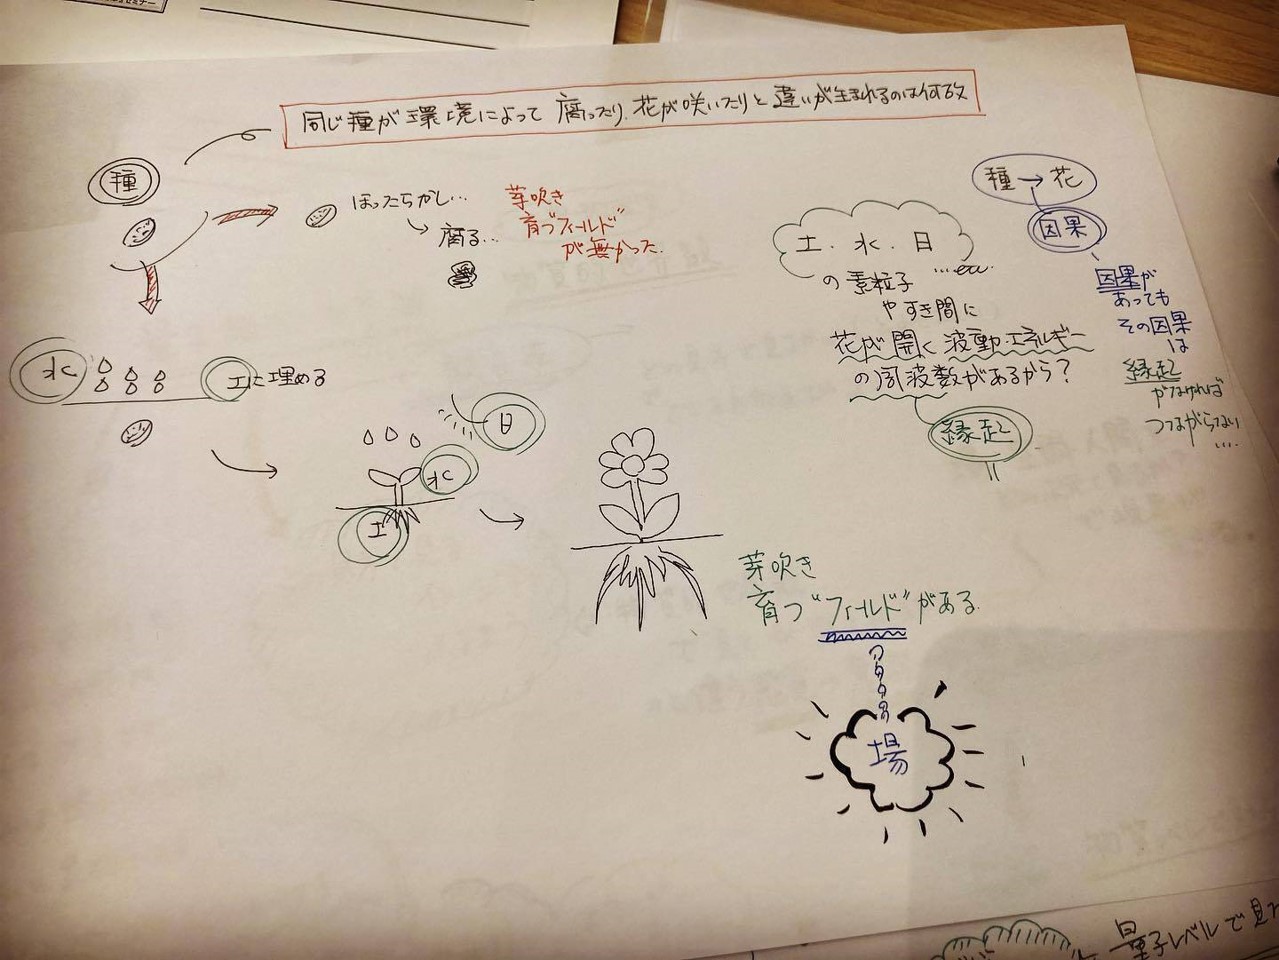 セミナー
同じ種が環境によって腐ったり、花が咲いたりと違いが生まれるのは何故
種
ほったらかし…
腐る…
芽吹き
育つ"フィールド"
が無かった.
水
土に埋める
日
水
土
芽吹き
育つ"フィールド"がある.
場
土.水.日
....etc.
の素粒子
やすき間に
花が開く波動・エネルギー
の周波数があるから?
縁起
種→花
因果
因果が
あっても
その因果
は
縁起
がなければ
つながらない
....
量子レベルで見